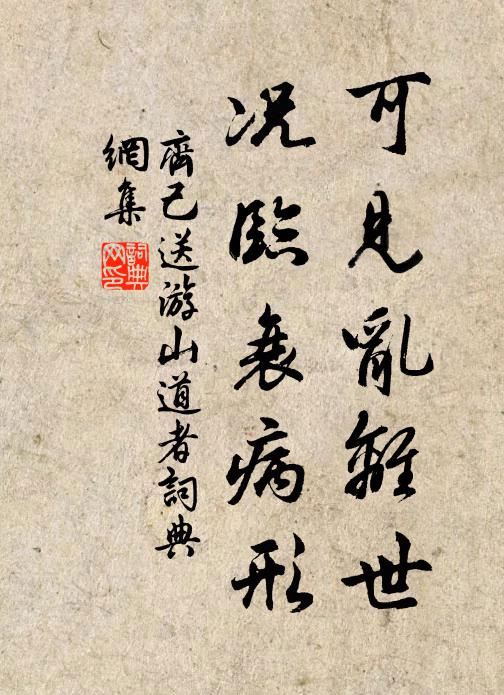 可見亂離世
況臨衰病形
齊己送游山道者詞典
網集
詞典
网印